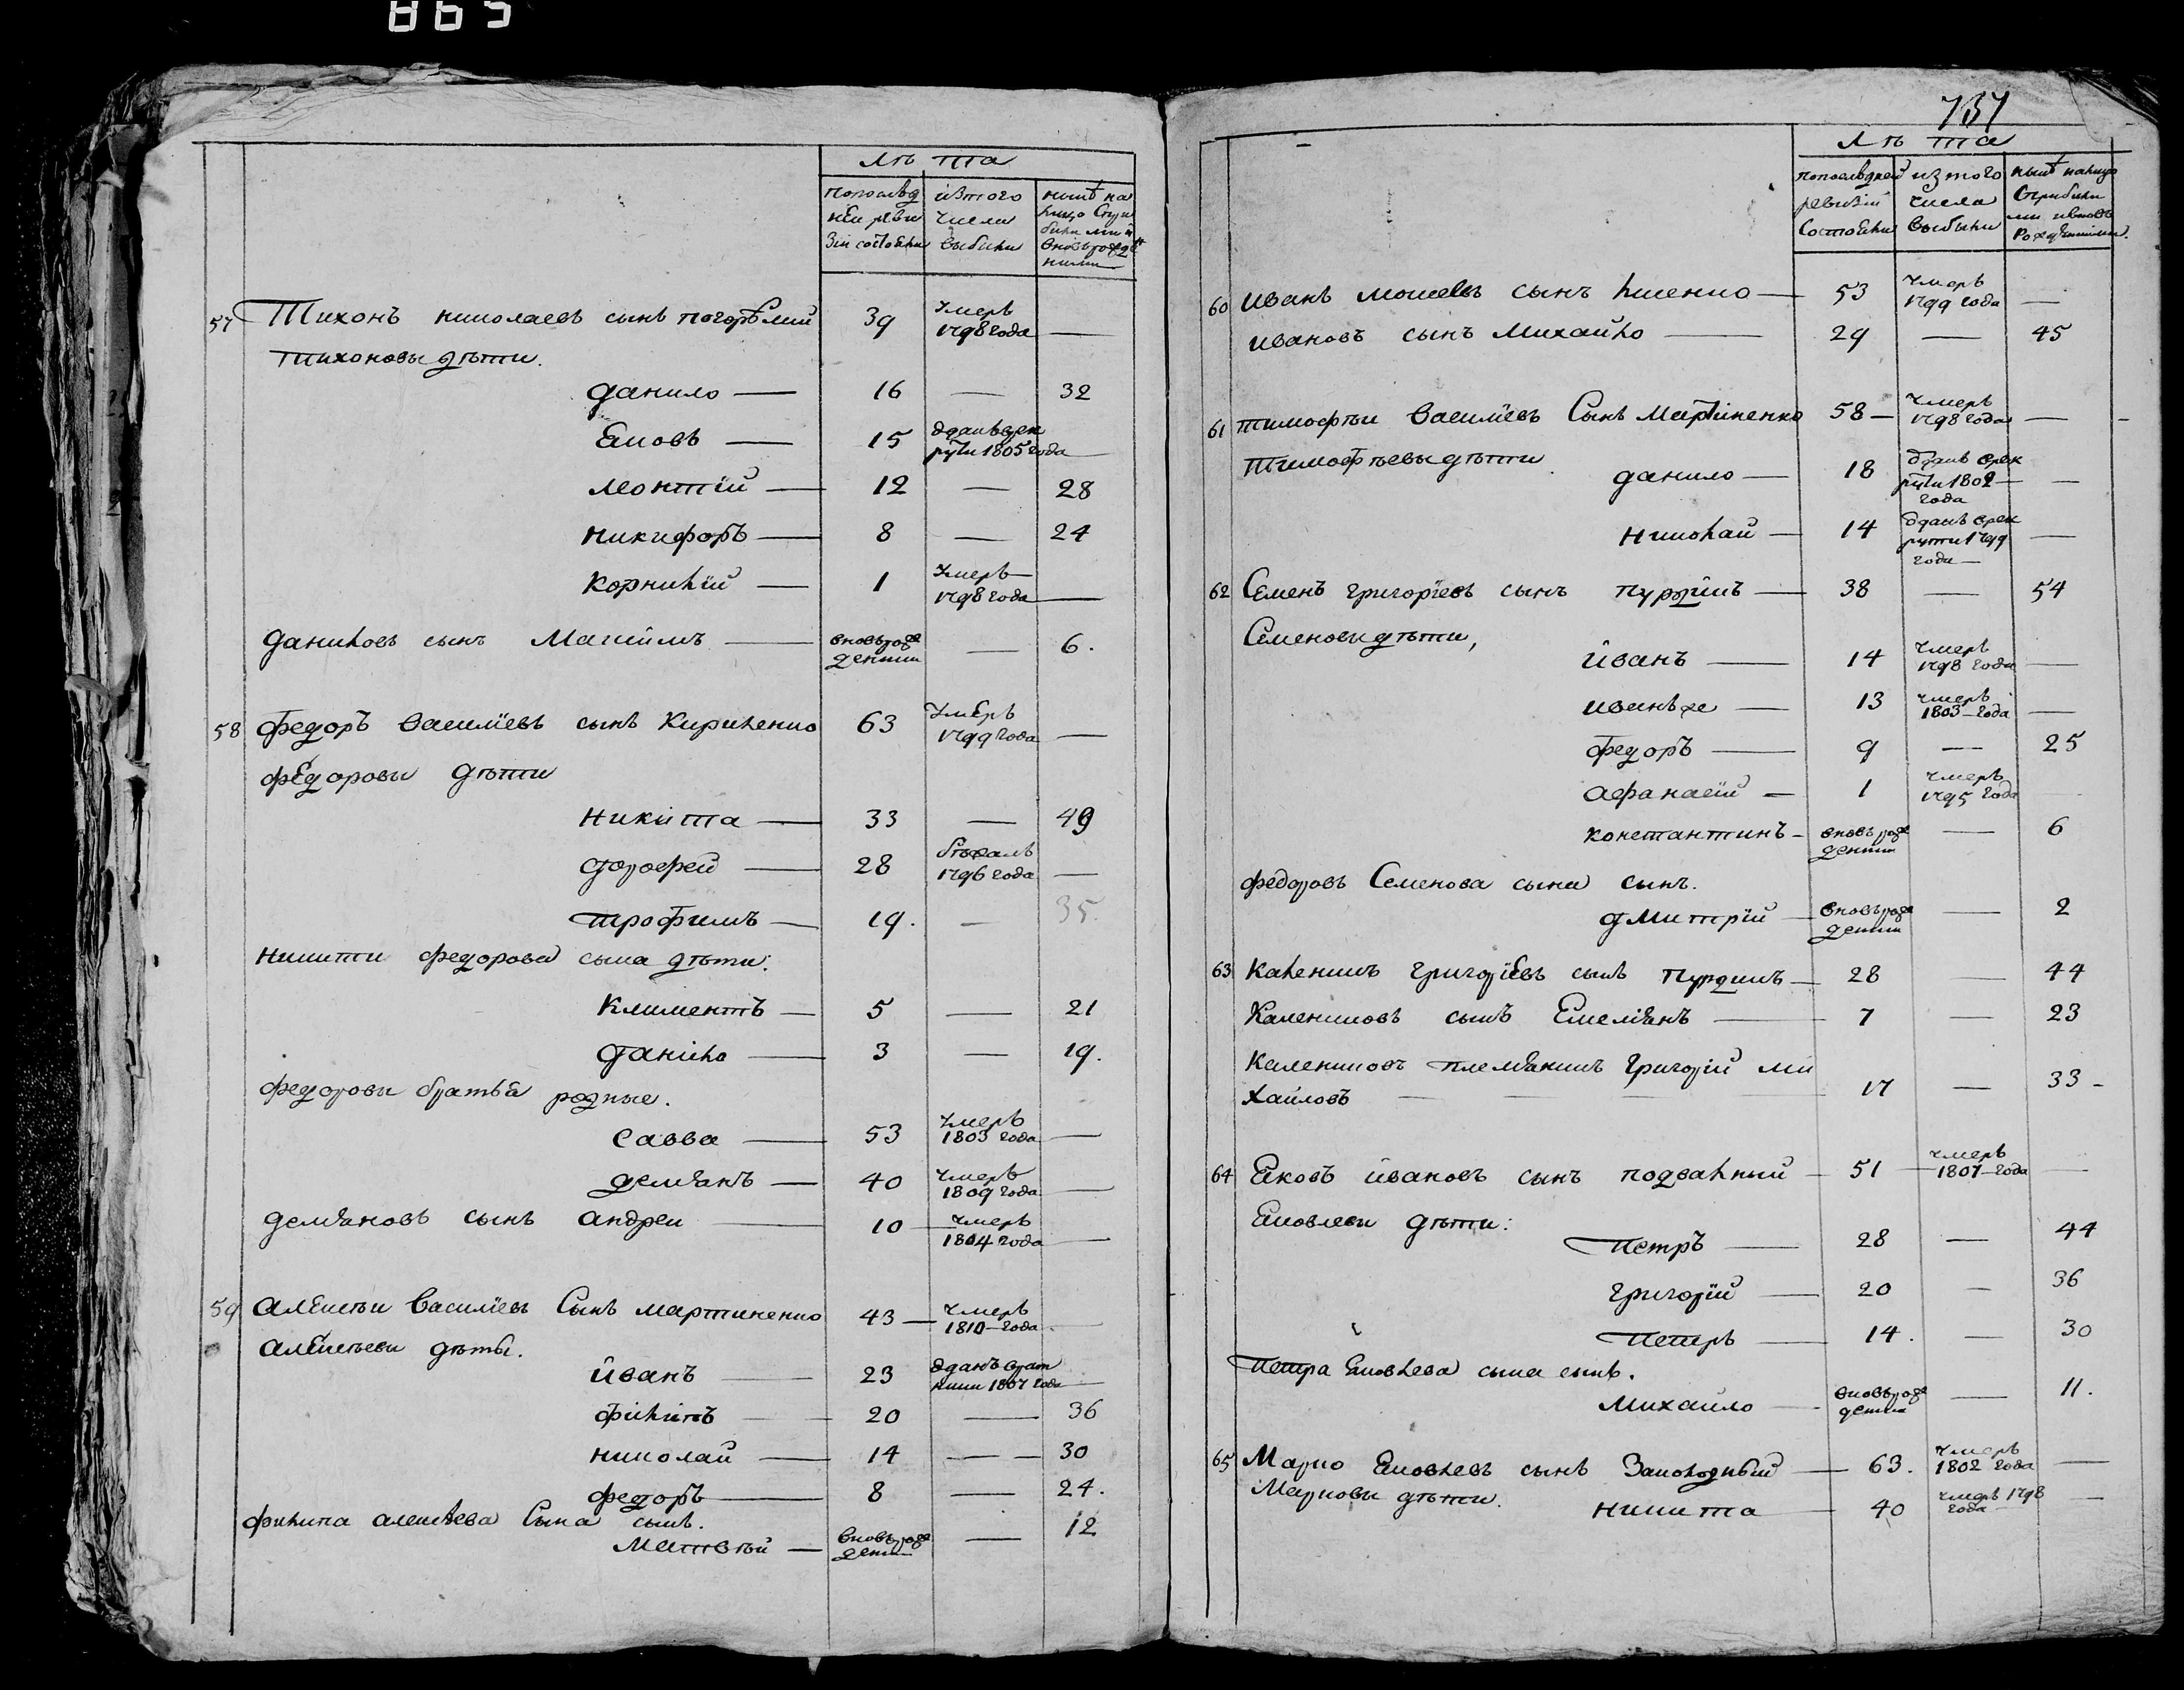 865
лѣта
попослѣд из того нынѣ на
ней реви числа лицо Спри
зіи состояли выбыли были ми и
вновь рожде
ними
57 Тихонъ николаевъ сынъ погорѣлий 39 Умеръ 1798 года —
тихоновы дѣти.
данило — 16 — 32
Яковъ — 15 Отданъ врек рути 1805 года —
леонтій — 12 — 28
никифоръ — 8 — 24
корнилій — 1 Умеръ 1798 года —
даниловъ сынъ Магсимъ — вновь рож денни — 6.
58 федоръ василиевъ сынъ Кириленко 63 Умеръ 1799 года —
федоровы дѣти
никита — 33 — 49
дорофей — 28 бѣжалъ 1796 года —
трофимъ — 19. — 35.
никити федорова сына дѣти:
климентъ — 5 — 21
данило — 3 — 19.
федоровы братья родные.
савва — 53 Умеръ 1803 года —
демянъ — 40 Умеръ 1809 года —
демяновъ сынъ андреи — 10 — Умеръ 1804 года —
59 алексѣи василиевъ Сынъ мартиненко 43 — Умеръ 1810 года —
алексѣеви дѣты.
иванъ — 23 Отданъ врат ники 1807 года —
филипъ — 20 — 36
николай — 14 — 30
федоръ — 8 — 24.
филипа алексѣева Сына сынъ.
Матвѣй — вновь рож денни — 12
737
лѣта
попослѣдней из того нынѣ налицо
ревизіи числа Сприбыли
Состояли выбыли ми ивновь
Рожденними.
60 иванъ моисеевъ сынъ лисенко — 53 Умеръ 1799 года —
ивановъ сынъ михайло — 29 — 45
61 тимофѣи василиевъ Сынъ мартиненко 58 — Умеръ 1798 года —
тимофѣевы дѣти данило — 18 Отданъ врек рути 1802 года —
николай — 14 Отданъ врек рути 1799 года —
62 Семенъ григориевъ сынъ — 38 — 54
Семеновы дѣти,
иванъ — 14 Умеръ 1798 года —
иванъ же — 13 Умеръ 1803 года —
федоръ — 9 — 25
афанасій — 1 Умеръ 1795 года
константинъ — вновь рож денни — 6
федоровъ Семенова сына сынъ.
дмитрій — вновь рож денни — 2
63 каленикъ григориевъ сынъ — 28 — 44
Калениковъ сынъ Емеліянъ — 7 — 23
Калениковъ племянникъ григорій ми
хайловъ — 17 — 33 —
64 Яковъ ивановъ сынъ подвальный — 51 — Умеръ 1807 года —
Яковлеви дѣти:
петръ — 28 — 44
григорій — 20 — 36
петръ — 14. — 30
петра Яковлева сына сынъ.
михайло — вновь рож денни — 11.
65 Марко Яковлевъ сынъ — 63. Умеръ 1802 года —
Марковы дѣти. никита — 40 Умеръ 1798 года —